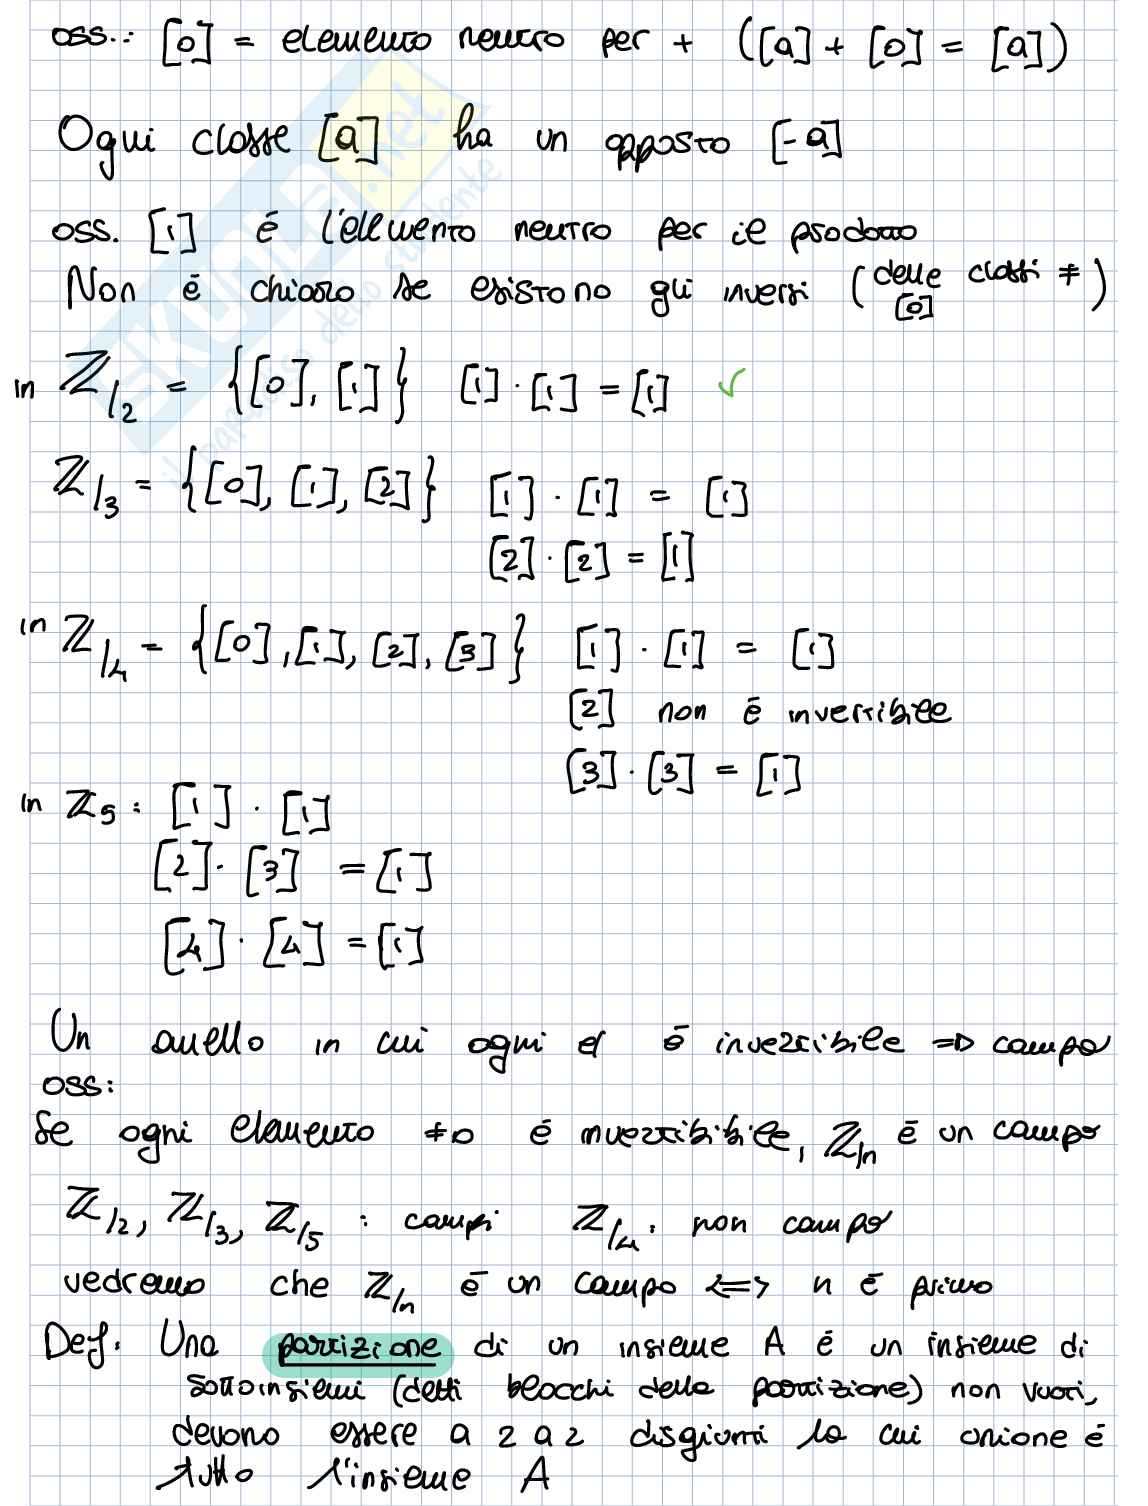 oss.: [0] = elemento neutro per + ([a] + [0] = [a])
Ogni classe [a] ha un opposto [-a]
oss. [1] é l'elemento neutro per il prodotto
Non é chiaro se esistono gli inversi (delle classi ≠ [0])
in ℤ/2 = {[0], [1]} [1] · [1] = [1] ✓
ℤ/3 = {[0], [1], [2]} [1] · [1] = [1]
[2] · [2] = [1]
in ℤ/4 = {[0], [1], [2], [3]} [1] · [1] = [1]
[2] non é invertibile
[3] · [3] = [1]
in ℤ5 : [1] · [1]
[2] · [3] = [1]
[4] · [4] = [1]
Un anello in cui ogni el é invertibile ⇒ campo
oss:
se ogni elemento ≠0 é invertibibile, ℤ/n é un campo
ℤ/2, ℤ/3, ℤ/5 : campi ℤ/4 : non campo
vedremo che ℤ/n é un campo <=> n é primo
Def: Una partizione di un insieme A é un insieme di
sottoinsiemi (detti blocchi della partizione) non vuoti,
devono essere a 2 a 2 disgiunti la cui unione é
tutto l'insieme A
SKUOLA.net
il paradiso dello studente